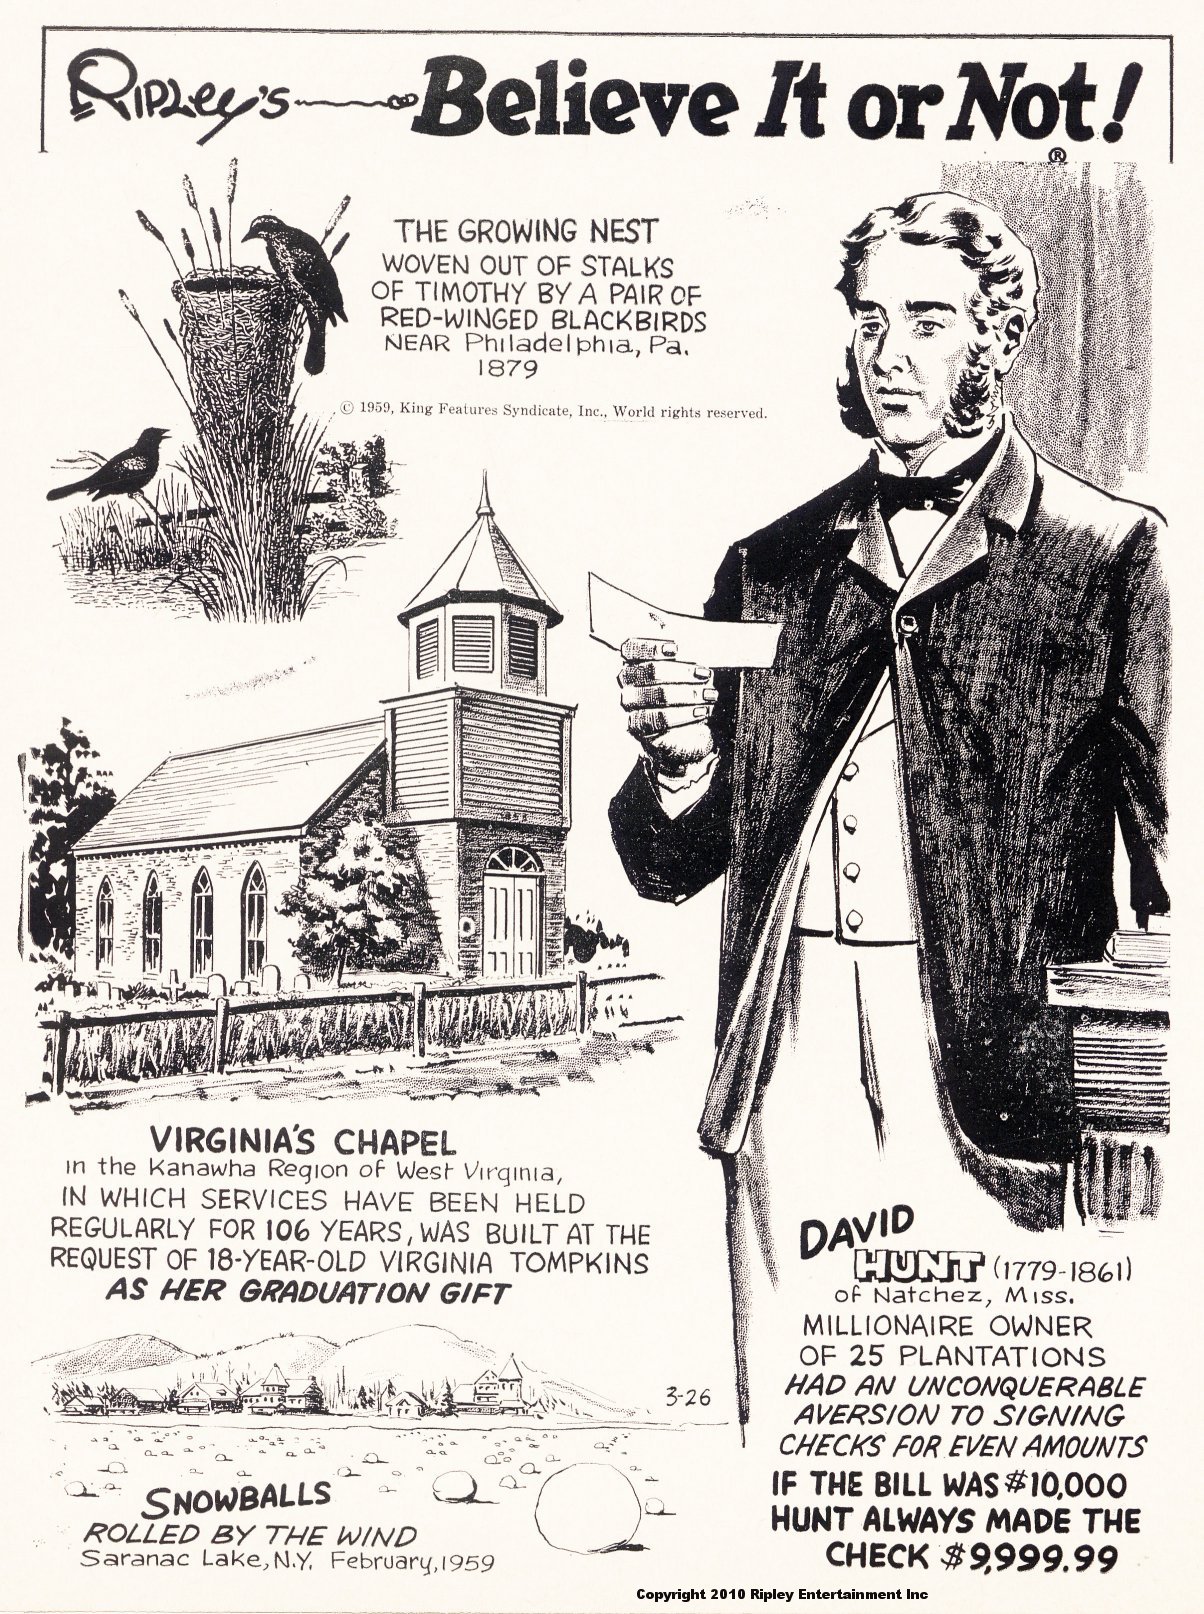 RIPLEY'S Believe It or Not!
®
THE GROWING NEST
WOVEN OUT OF STALKS
OF TIMOTHY BY A PAIR OF
RED-WINGED BLACKBIRDS
NEAR Philadelphia, Pa.
1879
© 1959, King Features Syndicate, Inc., World rights reserved.
VIRGINIA'S CHAPEL
in the Kanawha Region of West Virginia,
IN WHICH SERVICES HAVE BEEN HELD
REGULARLY FOR 106 YEARS, WAS BUILT AT THE
REQUEST OF 18-YEAR-OLD VIRGINIA TOMPKINS
AS HER GRADUATION GIFT
3-26
SNOWBALLS
ROLLED BY THE WIND
Saranac Lake, N.Y. February, 1959
DAVID
HUNT (1779-1861)
of Natchez, Miss.
MILLIONAIRE OWNER
OF 25 PLANTATIONS
HAD AN UNCONQUERABLE
AVERSION TO SIGNING
CHECKS FOR EVEN AMOUNTS
IF THE BILL WAS $10,000
HUNT ALWAYS MADE THE
CHECK $9,999.99
Copyright 2010 Ripley Entertainment Inc